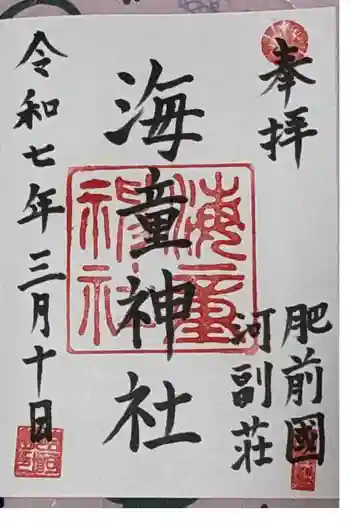 奉拝
肥前國
河副荘
海童神社
海童
神社
令和七年三月十日